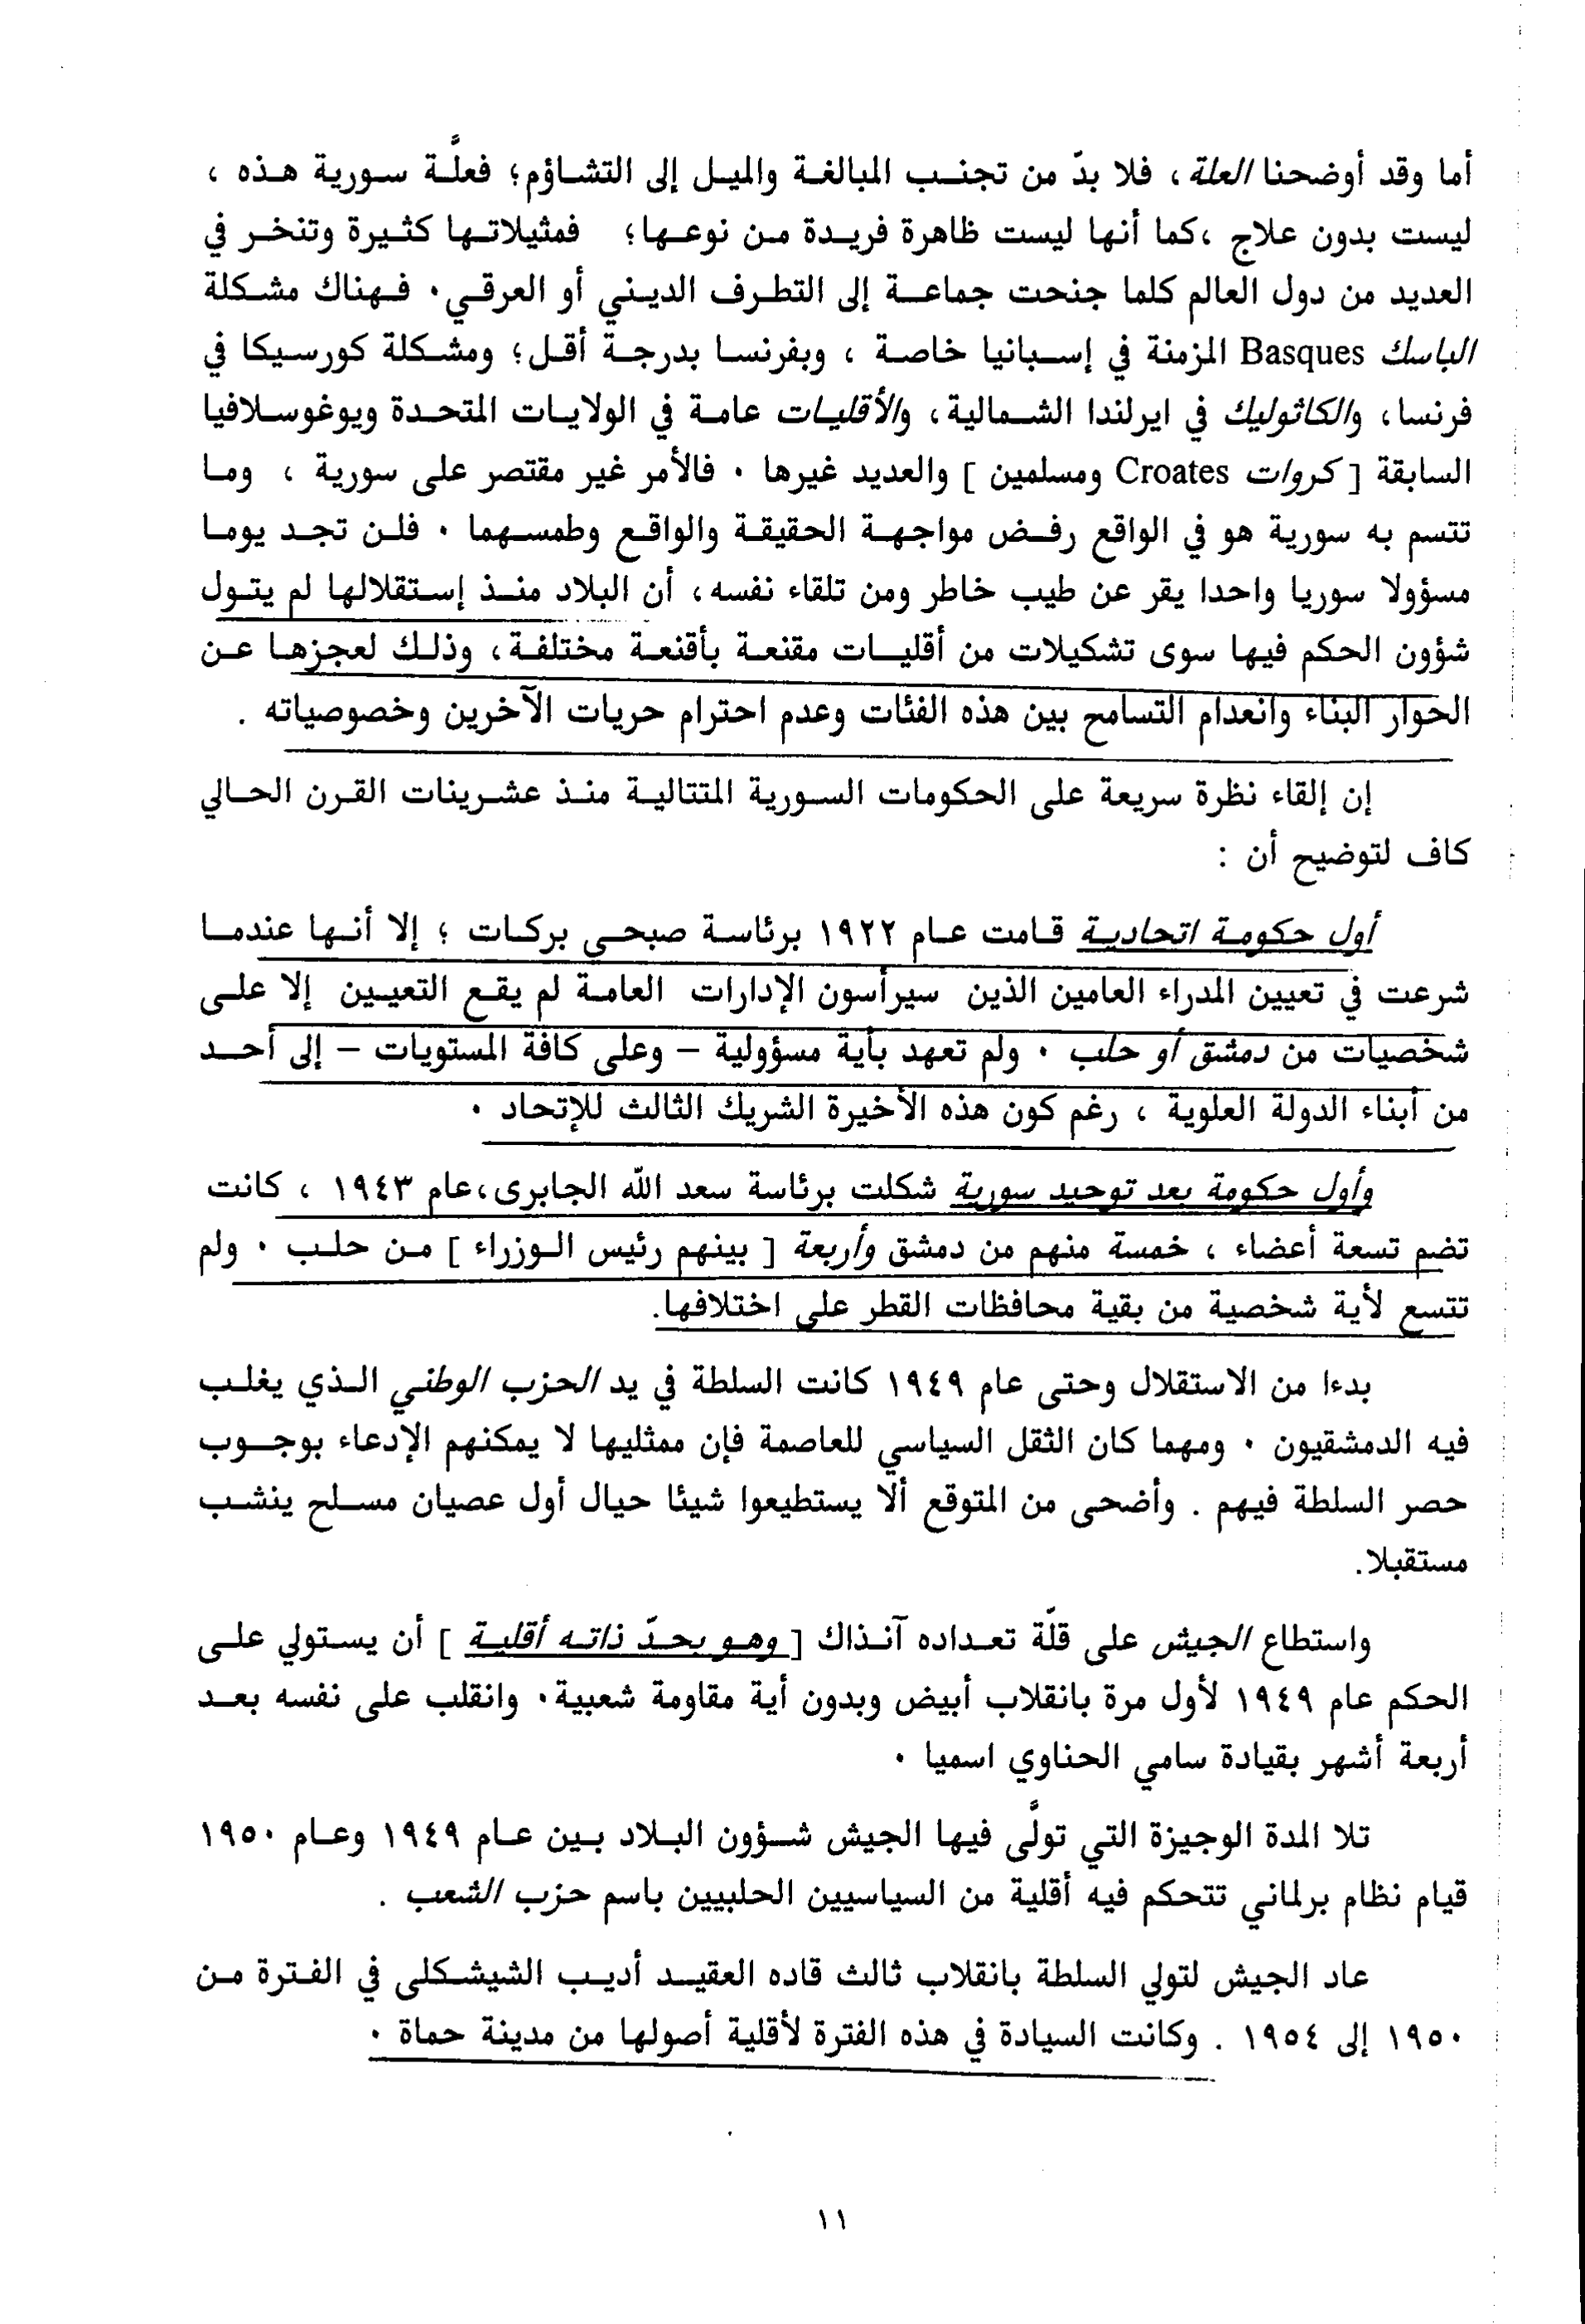 أما وقد أوضحنا العلة، فلا بدّ من تجنب المبالغة والميل إلى التشاؤم؛ فعلَّة سورية هذه ،
ليست بدون علاج ،كما أنها ليست ظاهرة فريدة من نوعها؛ فمثيلاتها كثيرة وتنخر في
العديد من دول العالم كلما جنحت جماعة إلى التطرف الديني أو العرقي٠ فهناك مشكلة
الباسك Basques المزمنة في إسبانيا خاصة ، وبفرنسا بدرجة أقل؛ ومشكلة كورسيكا في
فرنسا، والكاثوليك في ايرلندا الشمالية، والأقليات عامة في الولايات المتحدة ويوغوسلافيا
السابقة [ كروات Croates ومسلمين ] والعديد غيرها ٠ فالأمر غير مقتصر على سورية ، وما
تتسم به سورية هو في الواقع رفض مواجهة الحقيقة والواقع وطمسهما ٠ فلن تجد يوما
مسؤولا سوريا واحدا يقر عن طيب خاطر ومن تلقاء نفسه، أن البلاد منذ إستقلالها لم يتول
شؤون الحكم فيها سوى تشكيلات من أقليات مقنعة بأقنعة مختلفة، وذلك لعجزها عن
الحوار البناء وانعدام التسامح بين هذه الفئات وعدم احترام حريات الآخرين وخصوصياته .
إن إلقاء نظرة سريعة على الحكومات السورية المتتالية منذ عشرينات القرن الحالي
كاف لتوضيح أن :
أول حكومة اتحادية قامت عام ١٩٢٢ برئاسة صبحي بركات ؛ إلا أنها عندما
شرعت في تعيين المدراء العامين الذين سيرأسون الإدارات العامة لم يقع التعيين إلا على
شخصيات من دمشق أو حلب ٠ ولم تعهد بأية مسؤولية – وعلى كافة المستويات – إلى أحد
من أبناء الدولة العلوية ، رغم كون هذه الأخيرة الشريك الثالث للإتحاد ٠
وأول حكومة بعد توحيد سورية شكلت برئاسة سعد الله الجابرى،عام ١٩٤٣ ، كانت
تضم تسعة أعضاء ، خمسة منهم من دمشق وأربعة [ بينهم رئيس الوزراء ] من حلب ٠ ولم
تتسع لأية شخصية من بقية محافظات القطر على اختلافها.
بدءا من الاستقلال وحتى عام ١٩٤٩ كانت السلطة في يد الحزب الوطني الذي يغلب
فيه الدمشقيون ٠ ومهما كان الثقل السياسي للعاصمة فإن ممثليها لا يمكنهم الإدعاء بوجوب
حصر السلطة فيهم . وأضحى من المتوقع ألا يستطيعوا شيئا حيال أول عصيان مسلح ينشب
مستقبلا.
واستطاع الجيش على قلّة تعداده آنذاك [ وهو بحدّ ذاته أقلية ] أن يستولي على
الحكم عام ١٩٤٩ لأول مرة بانقلاب أبيض وبدون أية مقاومة شعبية٠ وانقلب على نفسه بعد
أربعة أشهر بقيادة سامي الحناوي اسميا ٠
تلا المدة الوجيزة التي تولَّى فيها الجيش شؤون البلاد بين عام ١٩٤٩ وعام ١٩٥٠
قيام نظام برلماني تتحكم فيه أقلية من السياسيين الحلبيين باسم حزب الشعب .
عاد الجيش لتولي السلطة بانقلاب ثالث قاده العقيد أديب الشيشكلى في الفترة من
١٩٥٠ إلى ١٩٥٤ . وكانت السيادة في هذه الفترة لأقلية أصولها من مدينة حماة ٠
١١